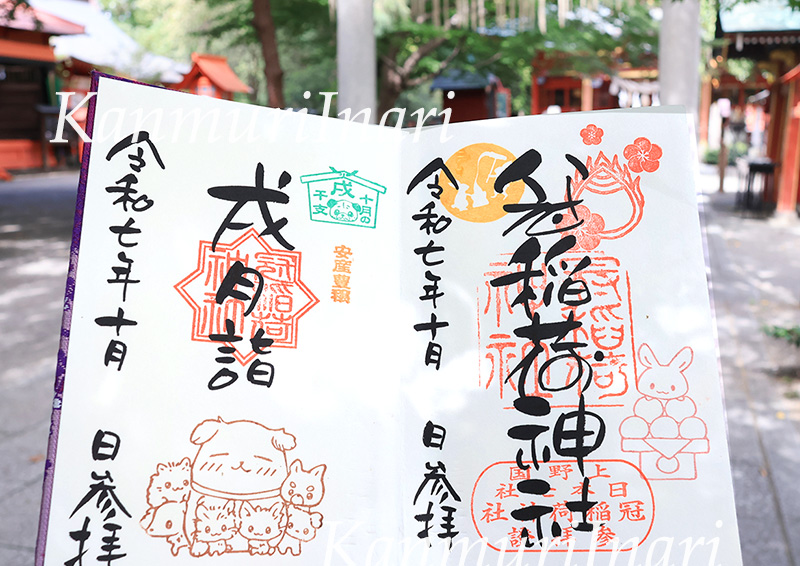 KanmuriInari
冠稲荷神社
令和七年十月 日参拝
冠稲荷神社
上野国
日本七社
冠稲荷神社
戌月詣
冠稲荷神社
十月の
戌
干支
安産豊穣
令和七年十月 日参拝
KanmuriInari